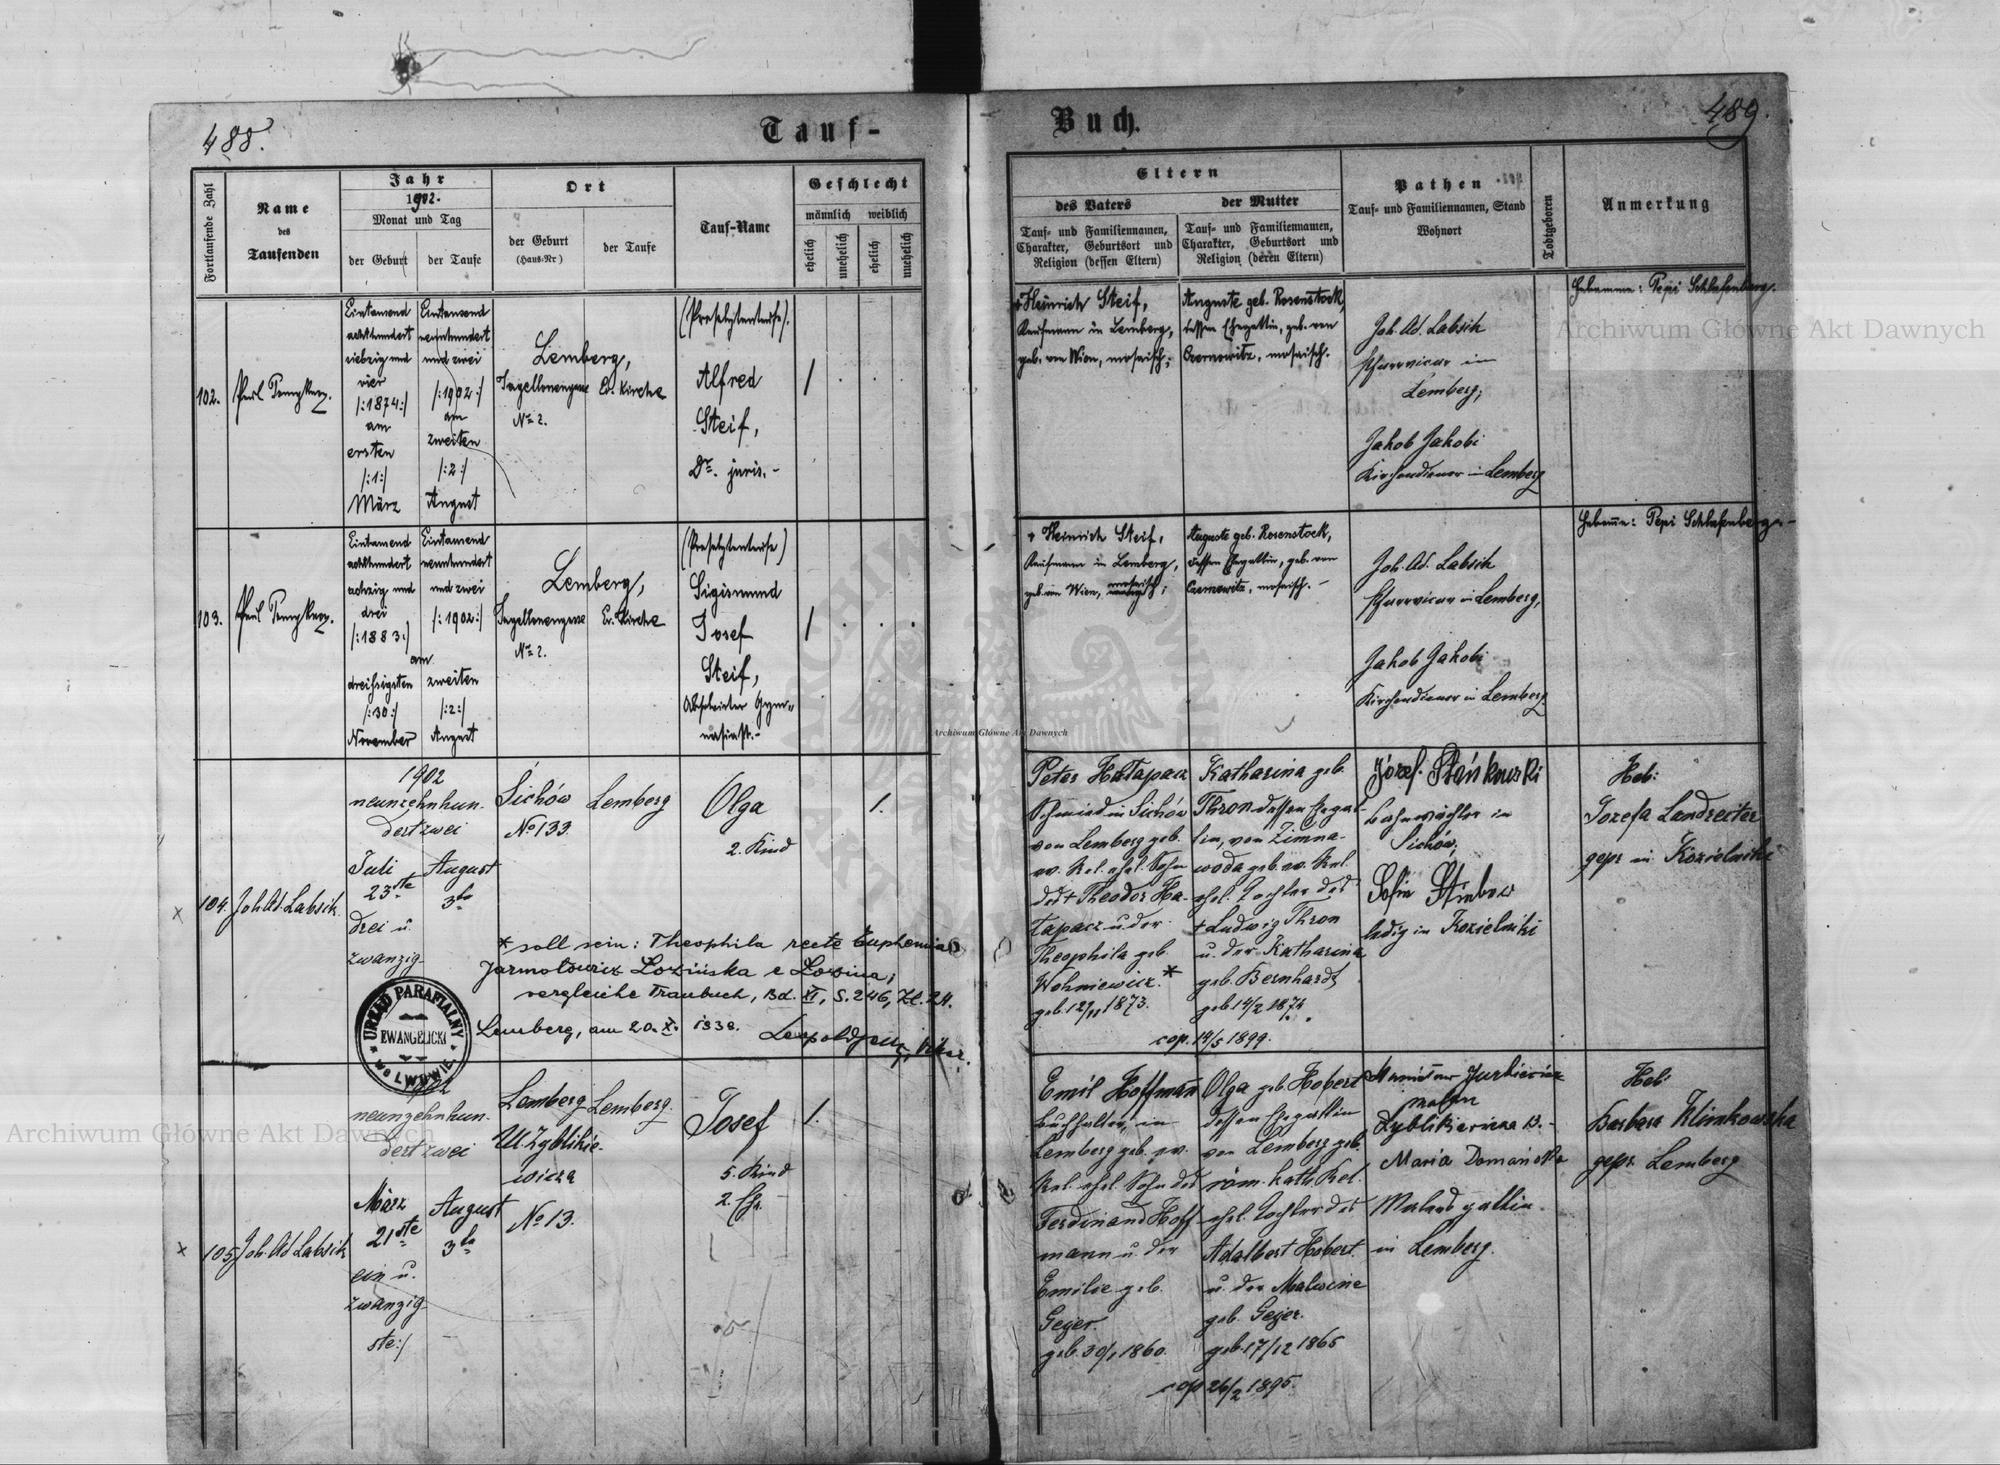 488.
Tauf-
Buch.
489.
Fortlaufende Zahl
Name
des
Taufenden
Jahr
1902.
Monat und Tag
der Geburt
der Taufe
Ort
der Geburt
(Haus-Nr)
der Taufe
Tauf-Name
Geschlecht
männlich
weiblich
ehelich
unehelich
ehelich
unehelich
Eltern
des Vaters
Tauf- und Familiennamen,
Charakter, Geburtsort und
Religion (dessen Eltern)
der Mutter
Tauf- und Familiennamen,
Charakter, Geburtsort und
Religion (deren Eltern)
Pathen
Tauf- und Familiennamen, Stand
Wohnort
Todtgeboren
Anmerkung
102.
Paul
Eintausend
achthundert
siebzig und
vier
/:1874:/
am
ersten
/:1:/
März
Eintausend
neunhundert
und zwei
/:1902:/
am
zweiten
/:2:/
August
Lemberg,
Jagellonengasse
No 2.
Ev. Kirche
(Proselytentaufe).
Alfred
Steif,
Dr. juris.-
/
+ Heinrich Steif,
Kaufmann in Lemberg,
geb. von Wien, mosaisch;
Auguste geb. Rosenstock,
dessen Ehegattin, geb. von
Czernowitz, mosaisch.
Joh. Ad. Labsik
Pfarrvicar in
Lemberg;
Jakob Jakobi
Kirchendiener in Lemberg
Hebamme: Pepi Schlafenberg.
103.
Paul
Eintausend
achthundert
achzig und
drei
/:1883:/
am
dreissigsten
/:30:/
November
Eintausend
neunhundert
und zwei
/:1902:/
zweiten
/:2:/
August
Lemberg,
Jagellonengasse
No 2.
Ev. Kirche
(Proselytentaufe)
Sigismund
Josef
Steif,
Absolvierter Gym-
nasiast.-
/
+ Heinrich Steif,
Kaufmann in Lemberg,
geb. von Wien, mosaisch;
Auguste geb. Rosenstock,
dessen Ehegattin, geb. von
Czernowitz, mosaisch.-
Joh. Ad. Labsik
Pfarrvicar in Lemberg,
Jakob Jakobi
Kirchendiener in Lemberg.
Hebame: Pepi Schlafenberg.-
x 104.
Joh. Ad. Labsik.
1902
neunzehnhun-
dertzwei
Juli
23ste
drei u.
zwanzig
August
3te
Sichów
No 133.
Lemberg
Olga
2. Kind
1.
Peter Hatapacz
Schmied in Sichów
von Lemberg geb.
ev. Rel. ehel. Sohn
des + Theodor Ha-
tapacz u. der
Theophila geb.
Wohniewicz.*
geb. 12/11 1873.
Katharina geb.
Thron dessen Ehegat-
tin, von Zimna-
woda geb. ev. Rel.
ehel. Tochter des
+ Ludwig Thron
u. der Katharina
geb. Bernhardt
geb. 14/2 1874.
cop. 14/5 1899.
Józef Stańkowski
Bahnwächter in
Sichów;
Sofie
ledig in Kozielniki
Heb:
Jozefa Landreiter
gepr. in Kozielniki
* soll sein: Theophila recte Euphemia
Jarmolowicz Łozińska e Łozina;
vergleiche Traubuch, Bd. XI, S. 246, Zl. 24.
Lemberg, am 20. X.
URZĄD PARAFIALNY
EWANGELICKI
WE LWOWIE
x 105.
Joh. Ad. Labsik
1902
neunzehnhun-
dertzwei
März
21ste
ein u.
zwanzig
ste:/
August
3te
Lemberg
Ul Zyblikie-
wicza
No 13.
Lemberg.
Josef
5. Kind
2. Ehe
1.
Emil Hoffmann
Buchhalter, in
Lemberg geb. ev.
Rel. ehel. Sohn des
Ferdinand Hoff
mann u. der
Emilie geb.
Geyer.
geb. 30/1 1860.
Olga geb. Hobert
dessen Ehegattin
von Lemberg geb.
röm. kath. Rel.
ehel. Tochter des
Adalbert Hobert
u. der Malwine
geb. Geyer.
geb. 17/12 1865
cop 26/2 1895.
Jurkiewicz
Maler
Zyblikiewicza 13.-
Maria Domańska
Malersgattin
in Lemberg.
Heb:
Barbara Klimkowska
gepr. Lemberg
Archiwum Główne Akt Dawnych
Archiwum Główne Akt Dawnych
Archiwum Główne Akt Dawnych